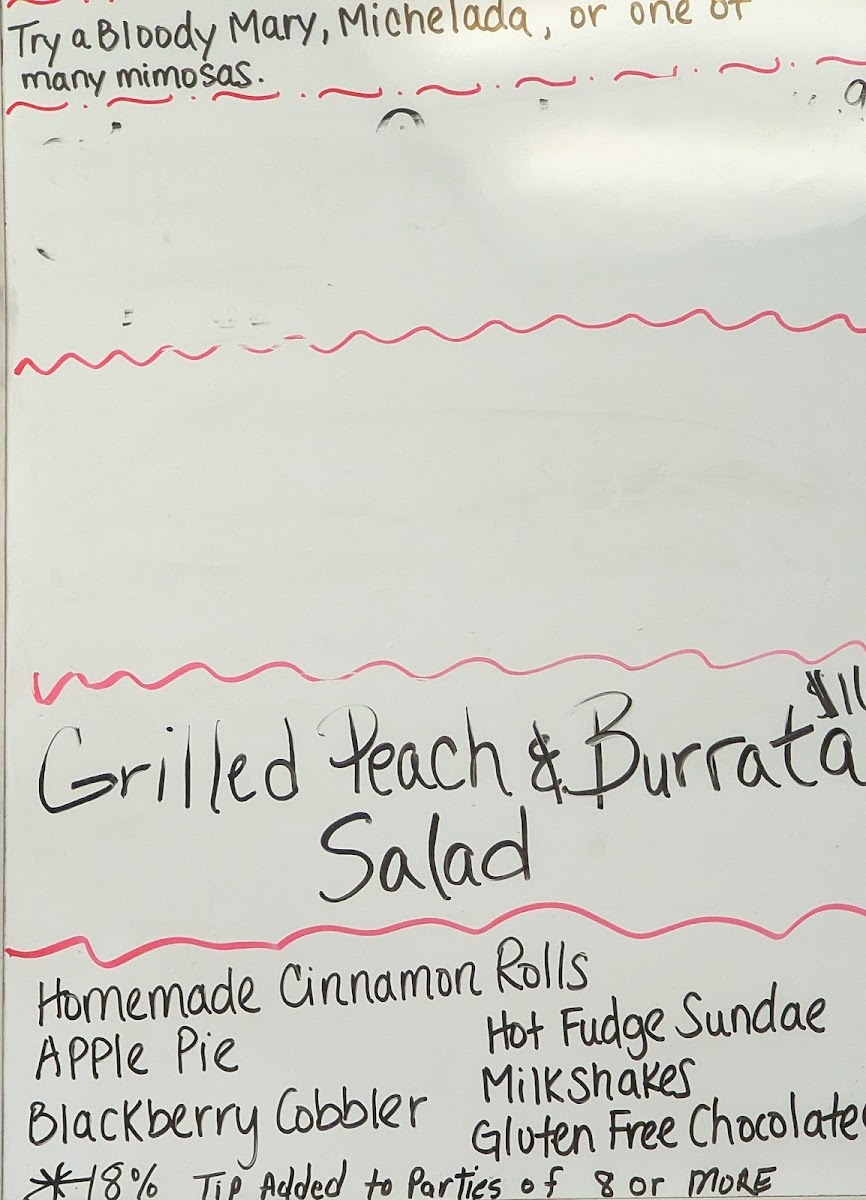 Try a Bloody Mary, Michelada, or one of
many mimosas.
Grilled Peach & Burrata
Salad
Homemade Cinnamon Rolls
Apple Pie
Hot Fudge Sundae
Milkshakes
Blackberry Cobbler
Gluten Free Chocolate
*18% Tip Added to Parties of 8 or MORE